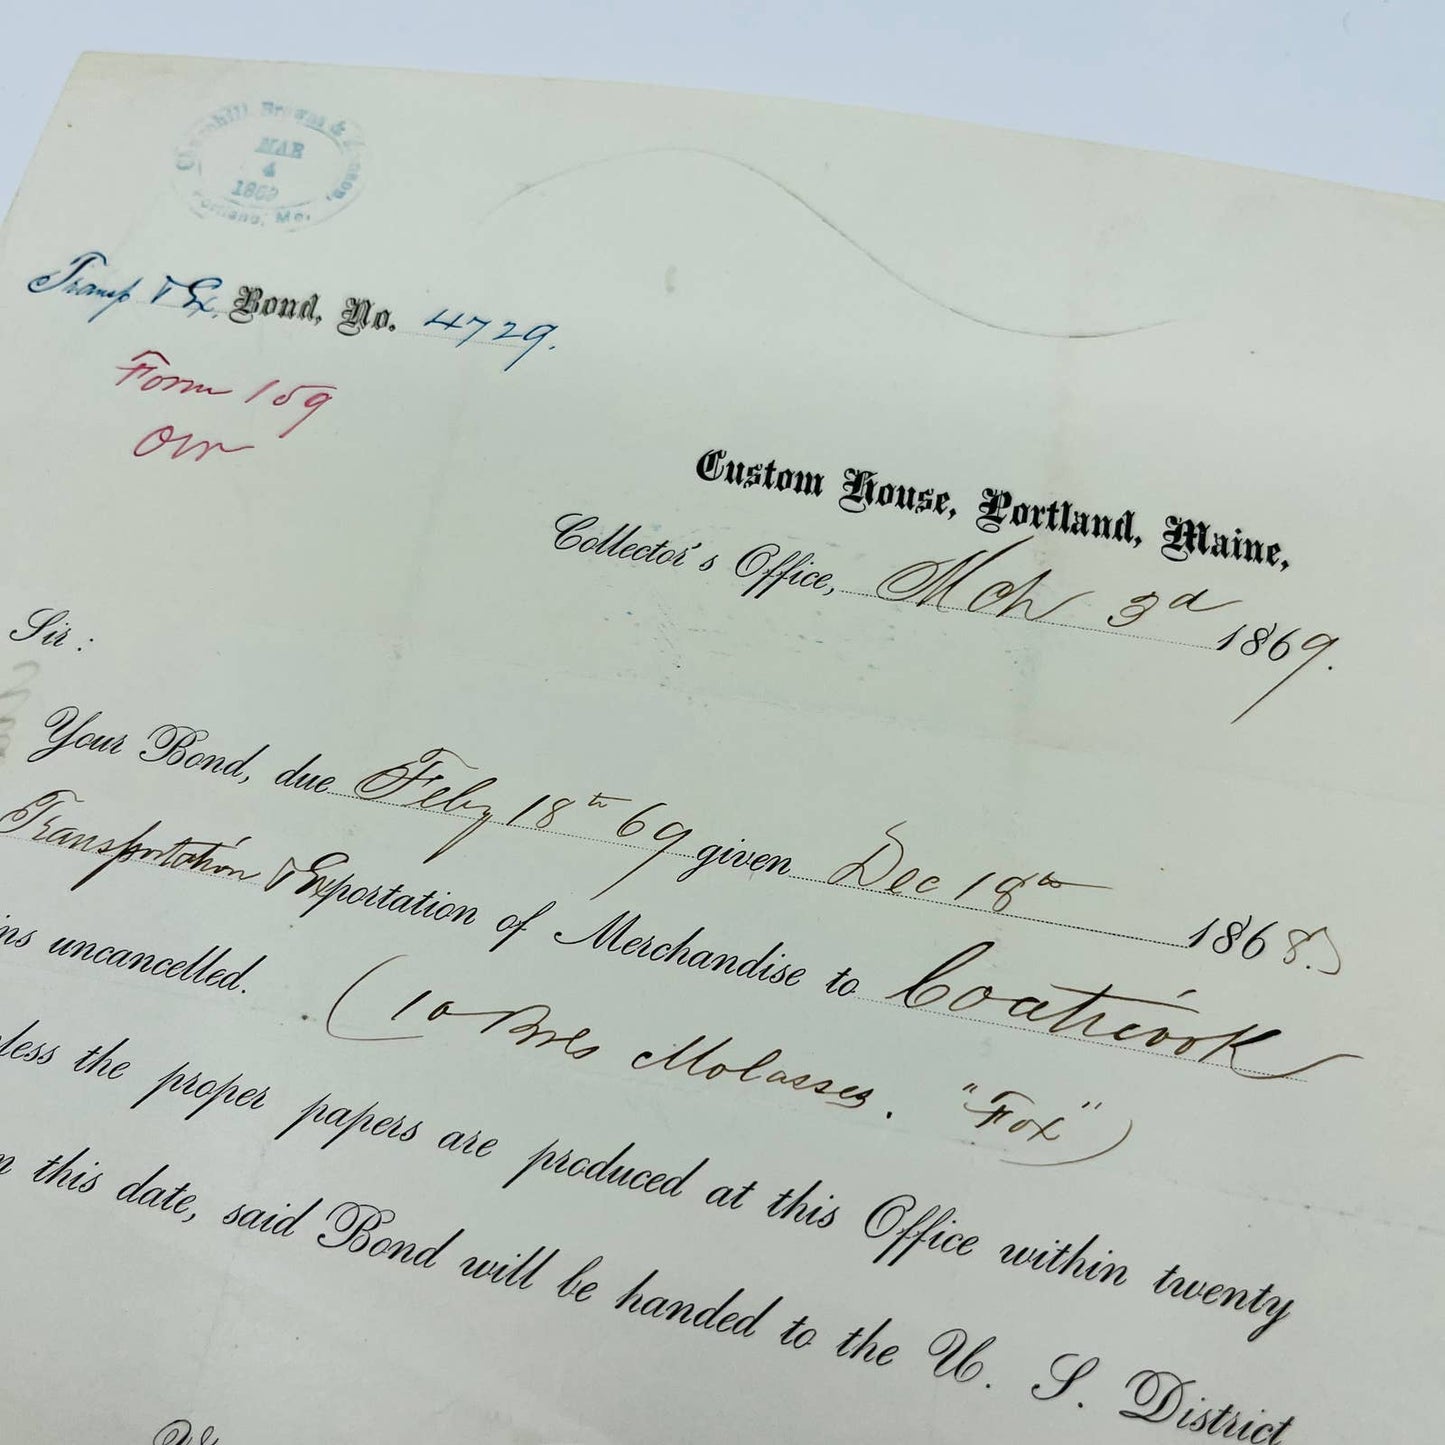 Churchill, Browns & Manson,
MAR
4
1869
Portland, Me.
Transp & Ex. Bond, No. 4729.
Form 159
Custom House, Portland, Maine,
Collector's Office, Mch 3d 1869.
Sir:
Your Bond, due Feby 18th 69 given Dec 18th 1868.
Transportation & Exportation of Merchandise to Coaticook
ins uncancelled.
(10 Bbls Molasses. "Fox")
less the proper papers are produced at this Office within twenty
this date, said Bond will be handed to the U. S. District